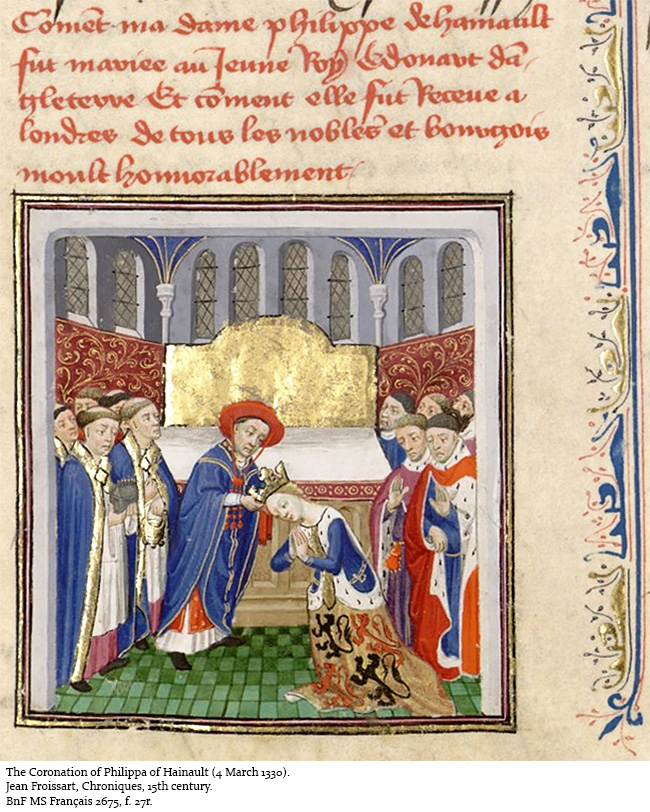 Com̃ent ma dame phelippe de hainault
fut mariee au Jeune Roy Edouart dã-
gleterre Et com̃ent elle fut Receue a
londres de tous les nobles et bourgois
moult honnorablement
The Coronation of Philippa of Hainault (4 March 1330).
Jean Froissart, Chroniques, 15th century.
BnF MS Français 2675, f. 27r.